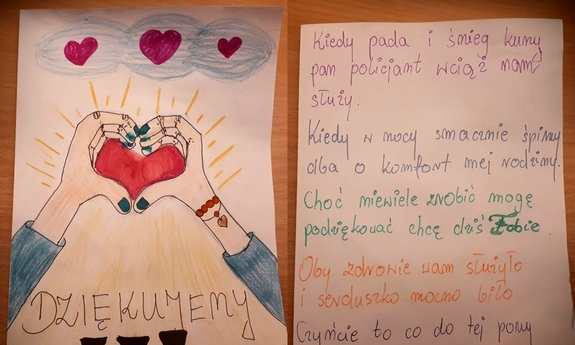 DZIĘKUJEMY
Kiedy pada i śnieg kurzy
pan policjant wciąż nam
służy.
Kiedy w nocy smacznie śpimy
dba o komfort mej rodzimy.
Choć niewiele zrobić mogę
podziękować chcę dziś Tobie
Oby zdrowie wam służyło
i serduszko mocno biło
Czyńcie to co do tej pory